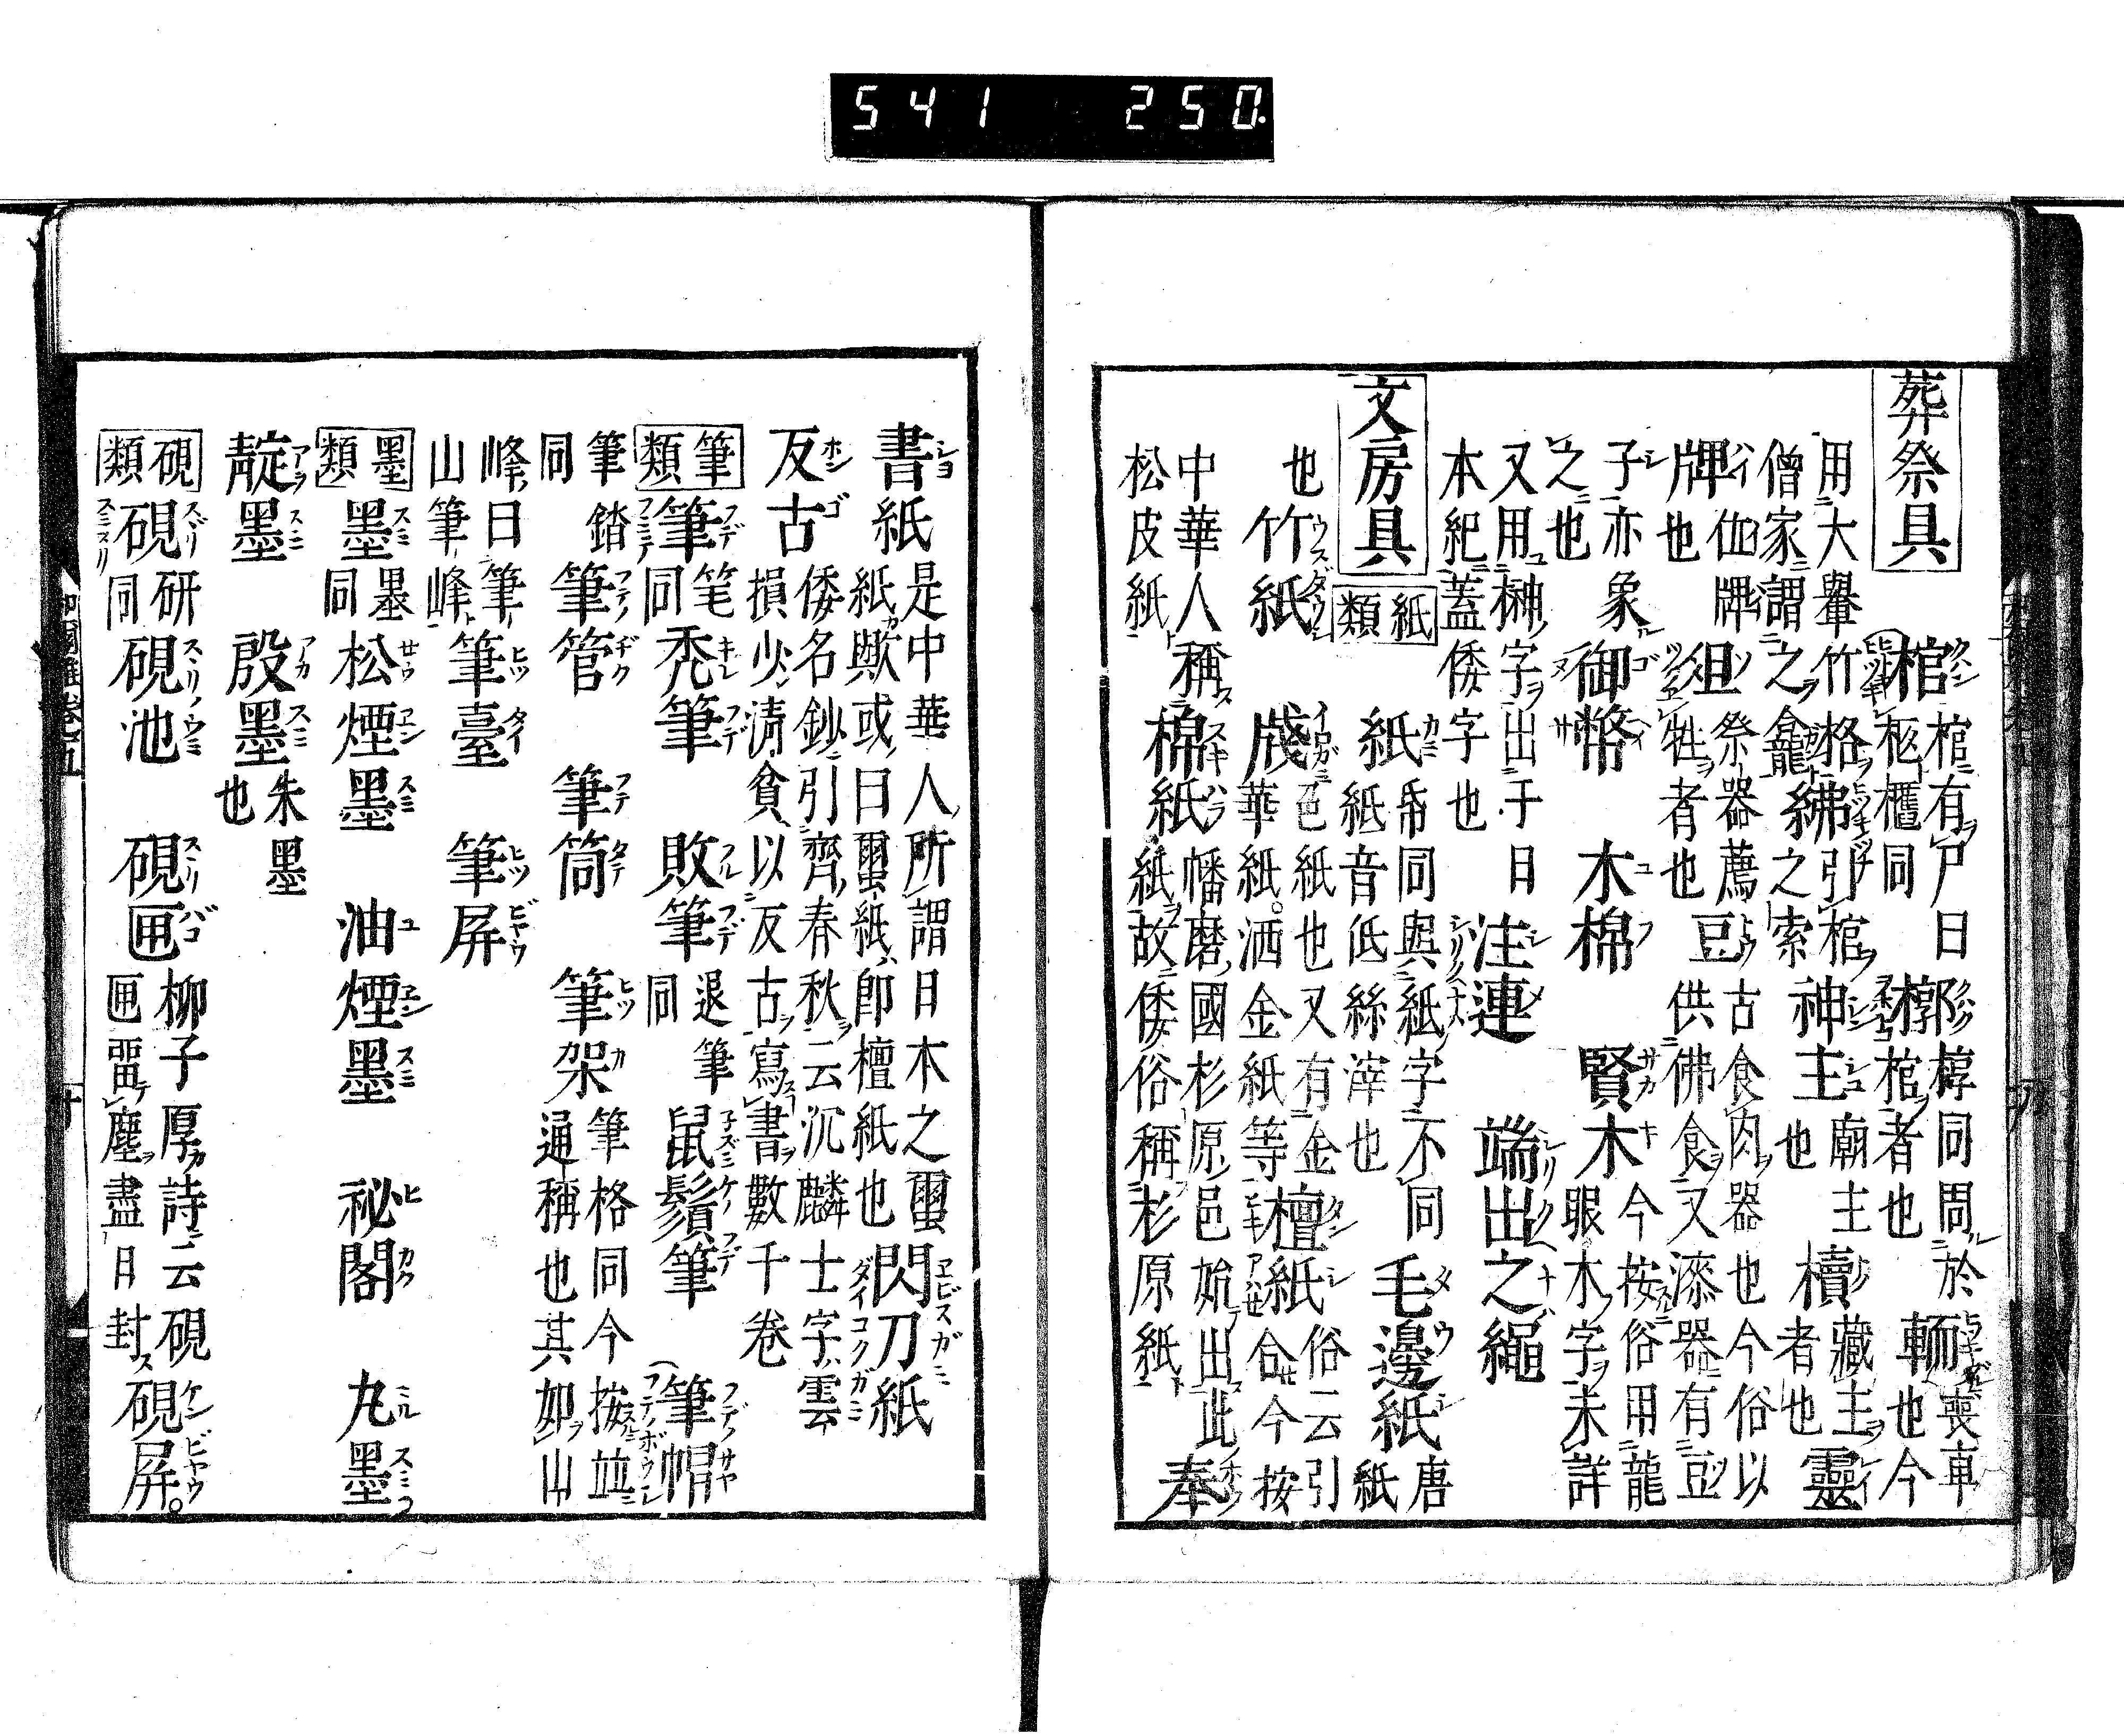 541 250.
葬祭具
棺 棺有尸曰
柩櫃同
槨 椁同周於
棺者也
輀 喪車
也今
用大轝竹格
僧家謂之龕
紼 引棺
之索
神主 廟主
也
櫝 藏主
者也
靈
牌 位牌
牌也
俎 祭器薦
牲者也
豆 古食肉器也今俗以
供佛食又漆器有豆
子亦象
之也
御幣
木棉
賢木 今按俗用龍
眼木字未詳
又用榊字出于日
本紀蓋倭字也
注連
端出之繩
文房具
紙類
紙 帋同與紙字不同
紙音低絲滓也
毛邊紙 唐
紙
也
竹紙
牋 色紙也又有金
華紙洒金紙等
檀紙 俗云引
合今按
中華人稱
松皮紙
棉紙 幡磨國杉原邑始出此
紙故倭俗稱杉原紙
奉
書紙 是中華人所謂日木之䘌
紙歟或曰䘌紙即檀紙也
閃刀紙
反古 倭名鈔引齊春秋云沉麟士字雲
損少清貧以反古寫書數千卷
筆類
筆 笔
同
禿筆
敗筆 退筆
同
鼠鬚筆
筆帽
筆䥪
同
筆管
筆筒
筆架 筆格同今按竝
通稱也其如山
峰曰筆
山筆峰
筆臺
筆屏
墨類
墨 墨
同
松煙墨
油煙墨
祕閣
丸墨
靛墨
殷墨 朱墨
也
硯類
硯 研
同
硯池
硯匣 柳子厚詩云硯
匣留塵盡日封
硯屏